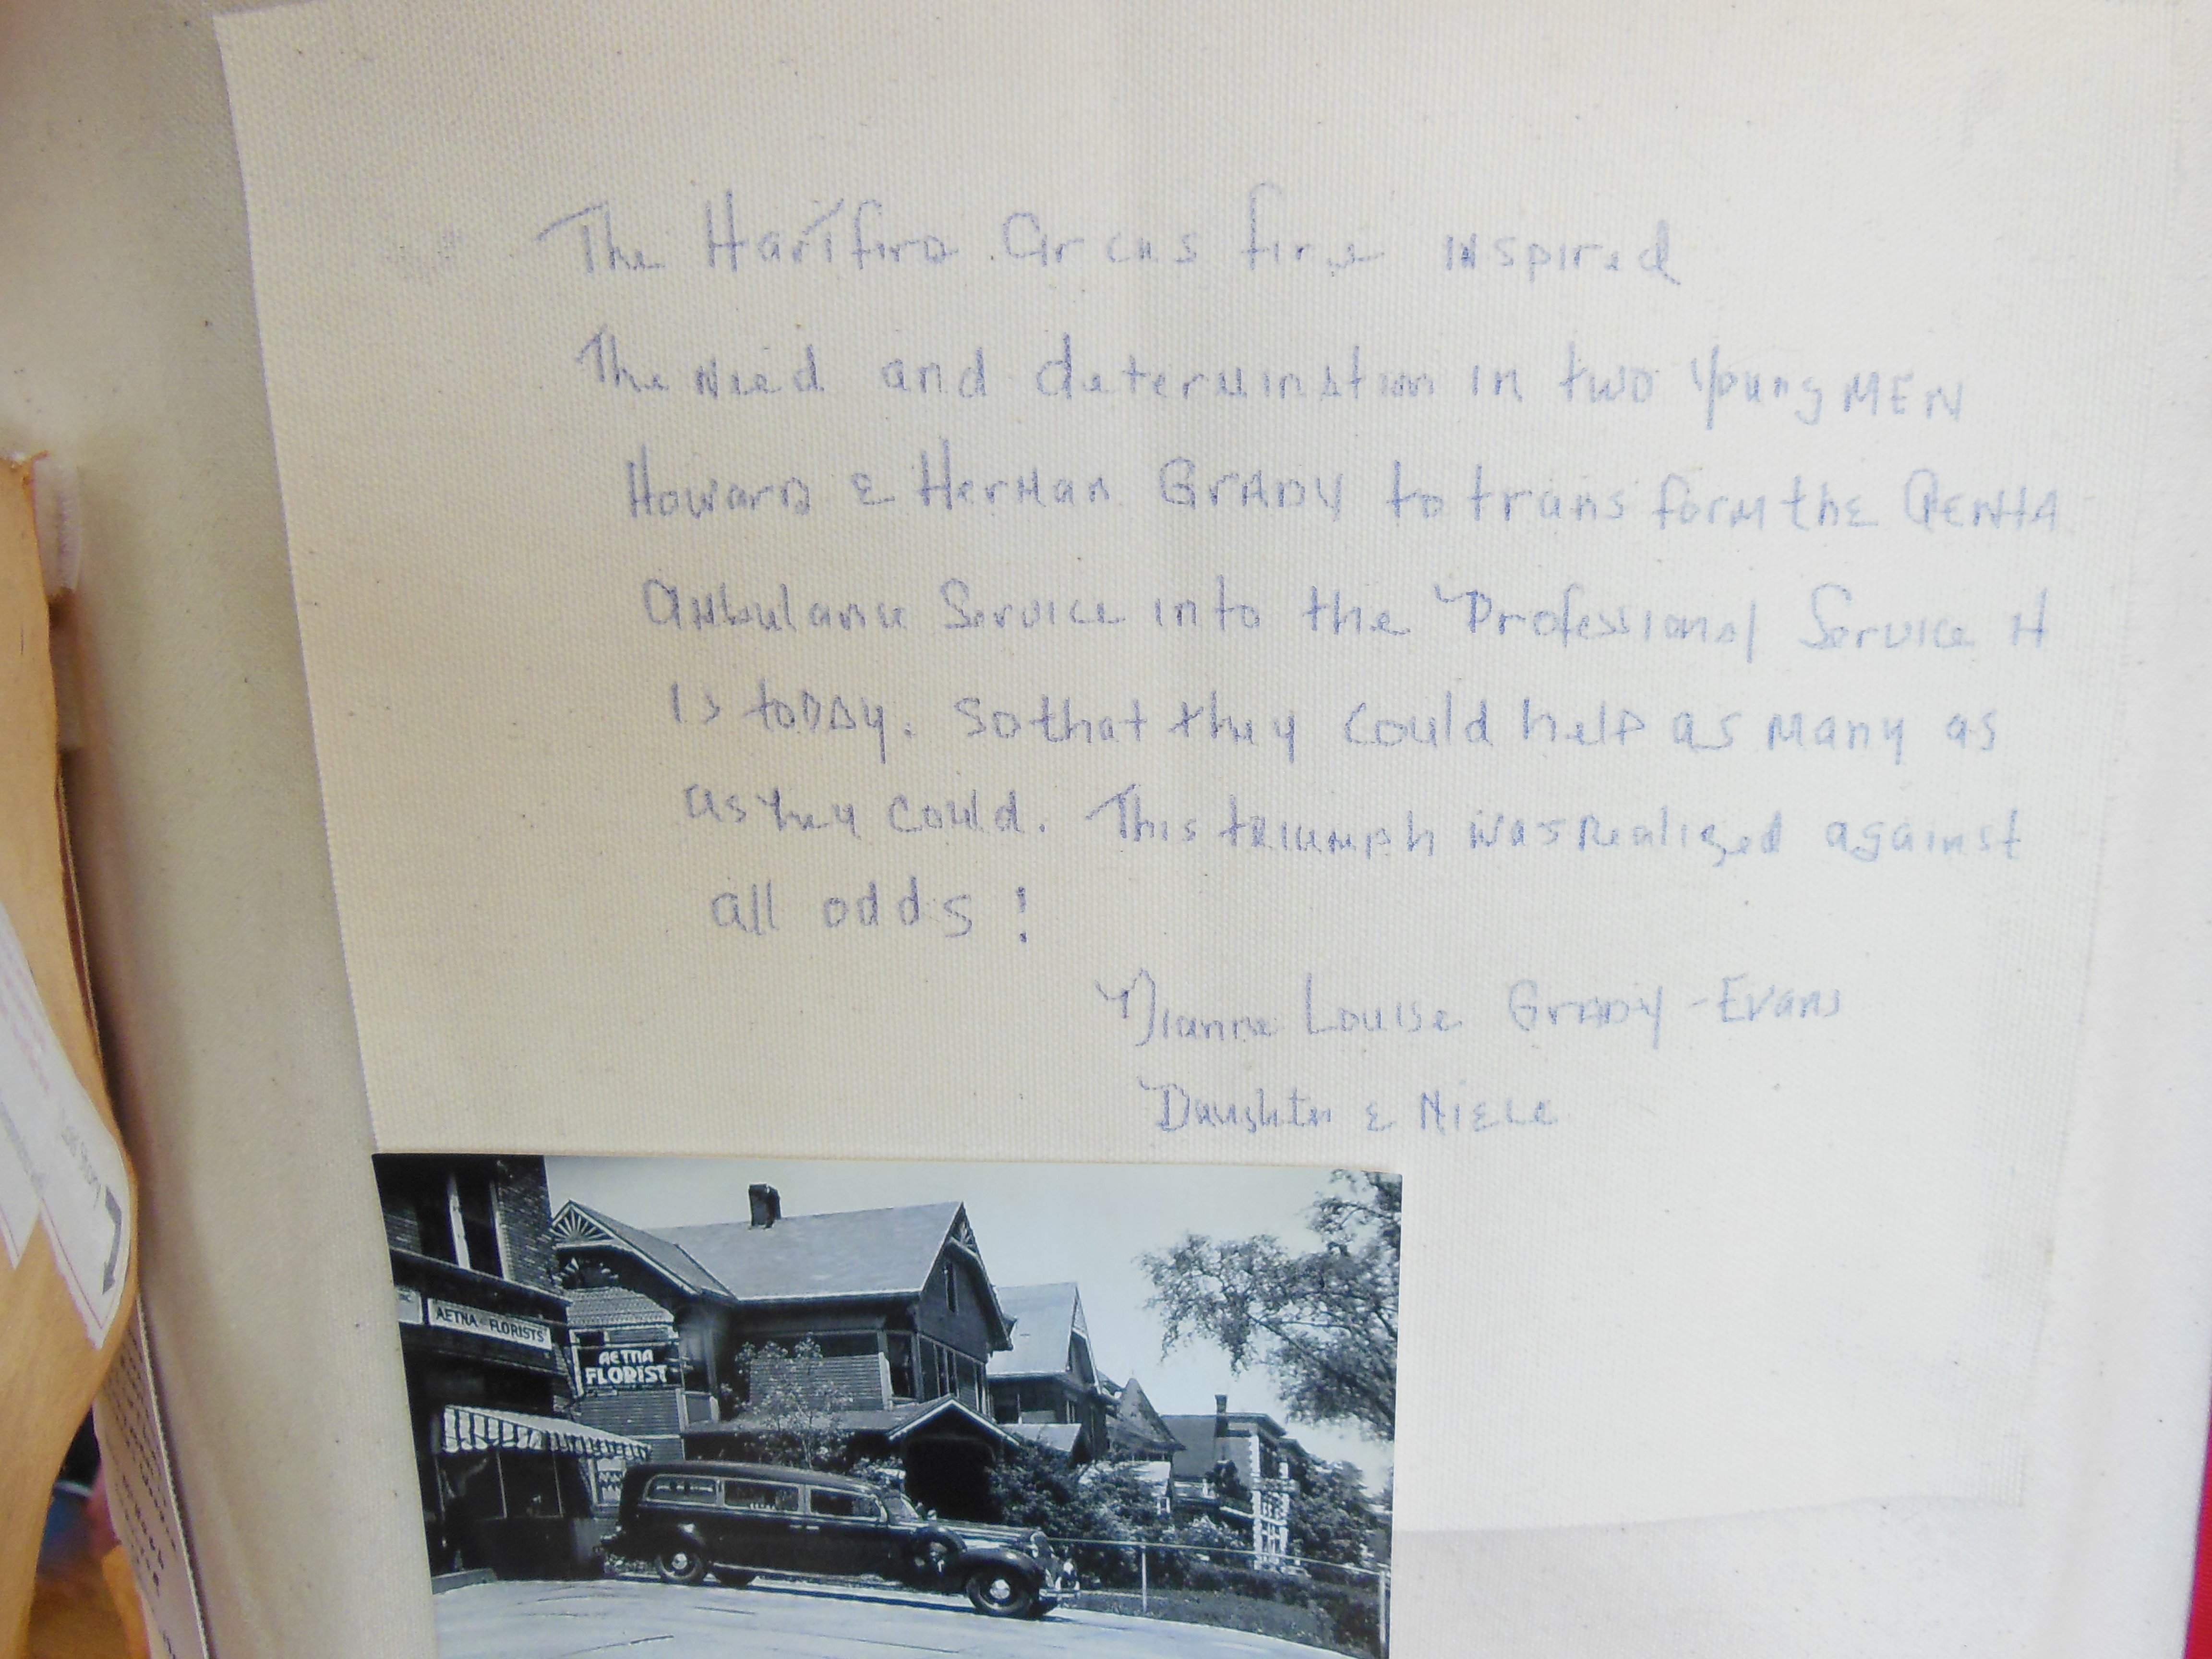 The Hartford Circus fire inspired
The need and determination in two young MEN
Howard & Herman GRADY to transform the AENTA
Ambulance Service into the Professional Service it
is today. So that they could help as many as
as they could. This triumph was realized against
all odds!
Dianne Louise GRADY-Evans
Daughter & Niece
AETNA FLORISTS
AETNA
FLORIST